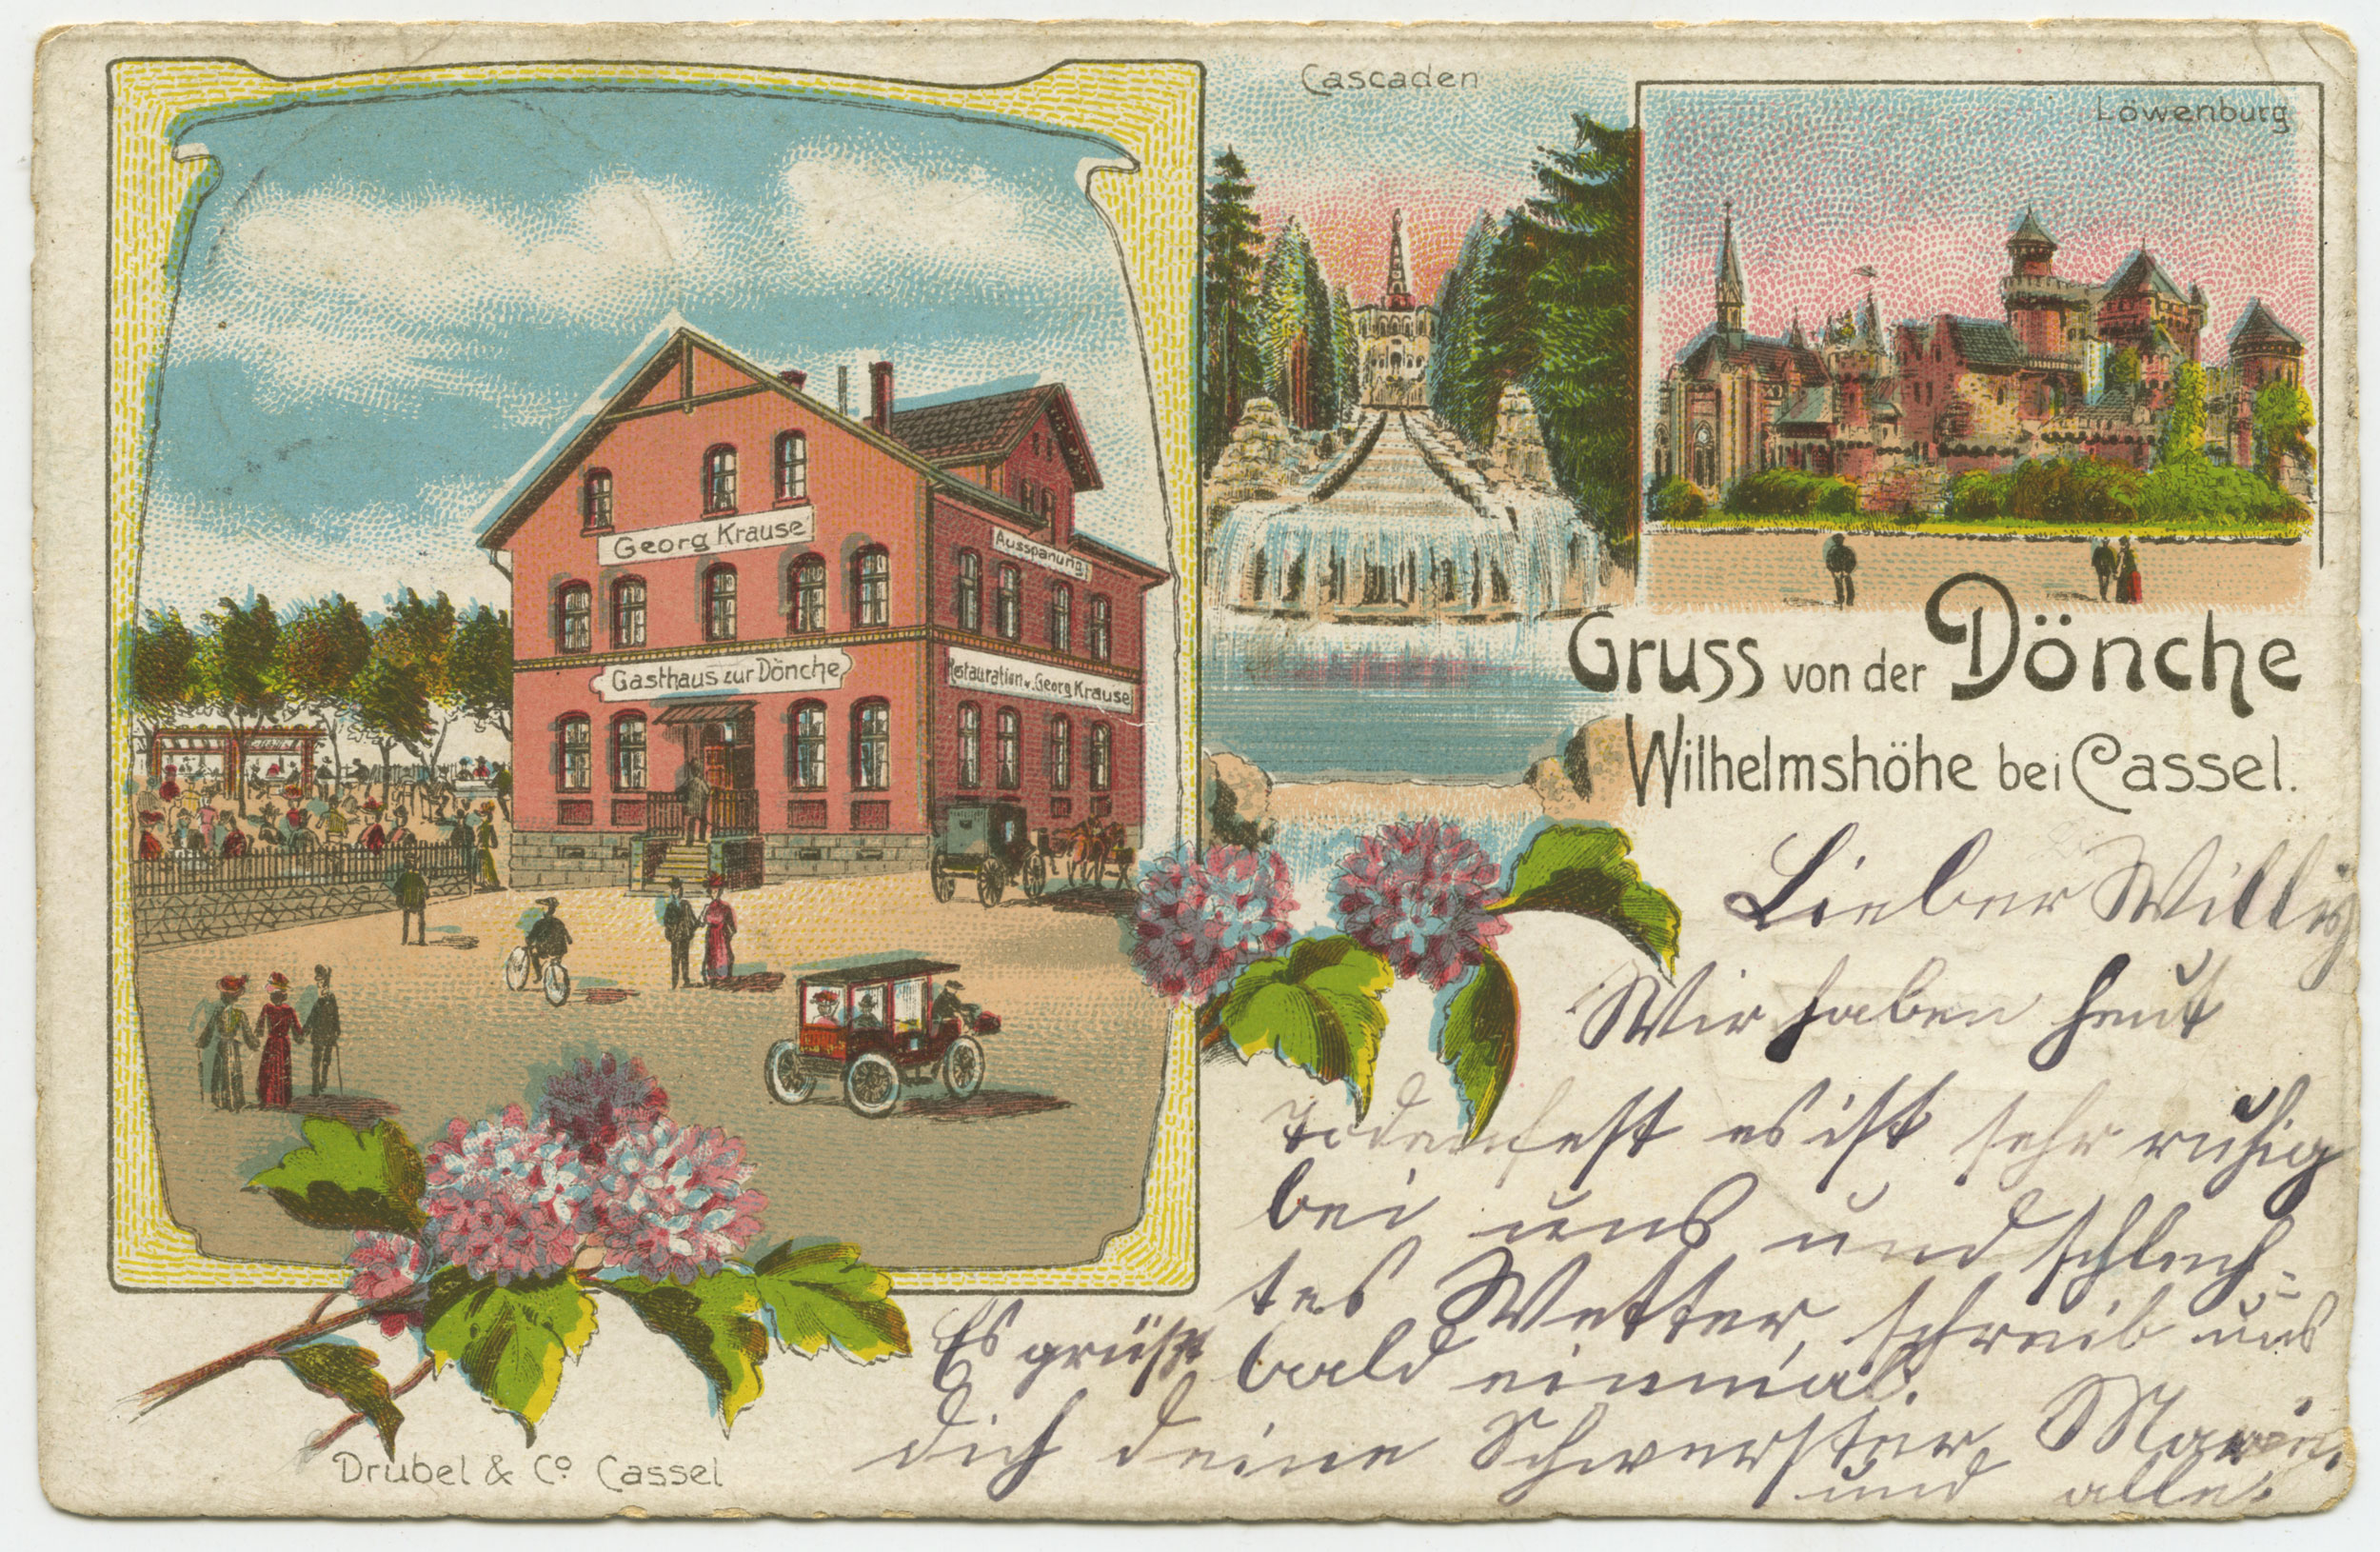 Cascaden
Löwenburg
Georg Krause
Ausspanung
Gasthaus zur Dönche
Restauration v. Georg Krause
Gruss von der Dönche
Wilhelmshöhe bei Cassel.
Lieber Willy
Wir haben heut
Todenfest es ist sehr ruhig
bei uns und schlech-
tes Wetter, schreib uns
bald einmal.
Es grüßt
dich deine Schwerster
und alle.
Drubel & Co Cassel